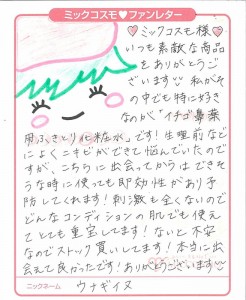 ミックコスモ♥ファンレター
♡ミックコスモ様♡
いつも素敵な商品
をありがとうご
ざいます 私がそ
の中でも特に好き
なのが"イチゴ鼻薬
用ふきとり化粧水"です!生理前など
によくニキビができて悩んでいたので
すが、こちらに出会ってからはできそ
うな時に使っても即効性があり予
防してくれます!刺激も全くないので
どんなコンディションの肌でも使え
てとても重宝してます!ないと不安
なのでストック買いしてます!本当に出
会えて良かったです!ありがとうございます
ニックネーム ウナギイヌ